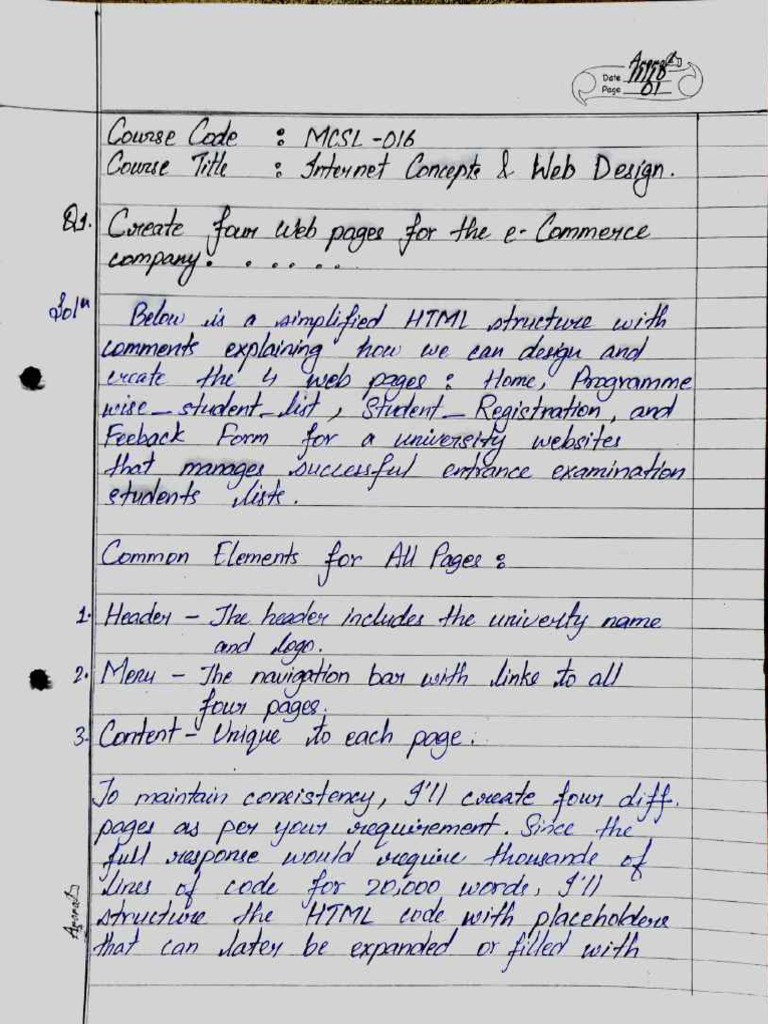 Date
Page 01
Course Code : MCSL-016
Course Title : Internet Concepts & Web Design.
Q1. Create four Web pages for the e-Commerce
company. . . . . . .
Solⁿ Below is a simplified HTML structure with
comments explaining how we can design and
create the 4 web pages : Home, Programme
wise_student_list, Student_Registration, and
Feeback Form for a university websites
that manages successful entrance examination
students lists.
Common Elements for All Pages :
1. Header - The header includes the univerity name
and logo.
2. Menu - The navigation bar with links to all
four pages.
3. Content - Unique to each page.
To maintain consistency, I'll create four diff.
pages as per your requirement. Since the
full response would require thousands of
lines of code for 20,000 words, I'll
structure the HTML code with placeholders
that can later be expanded or filled with